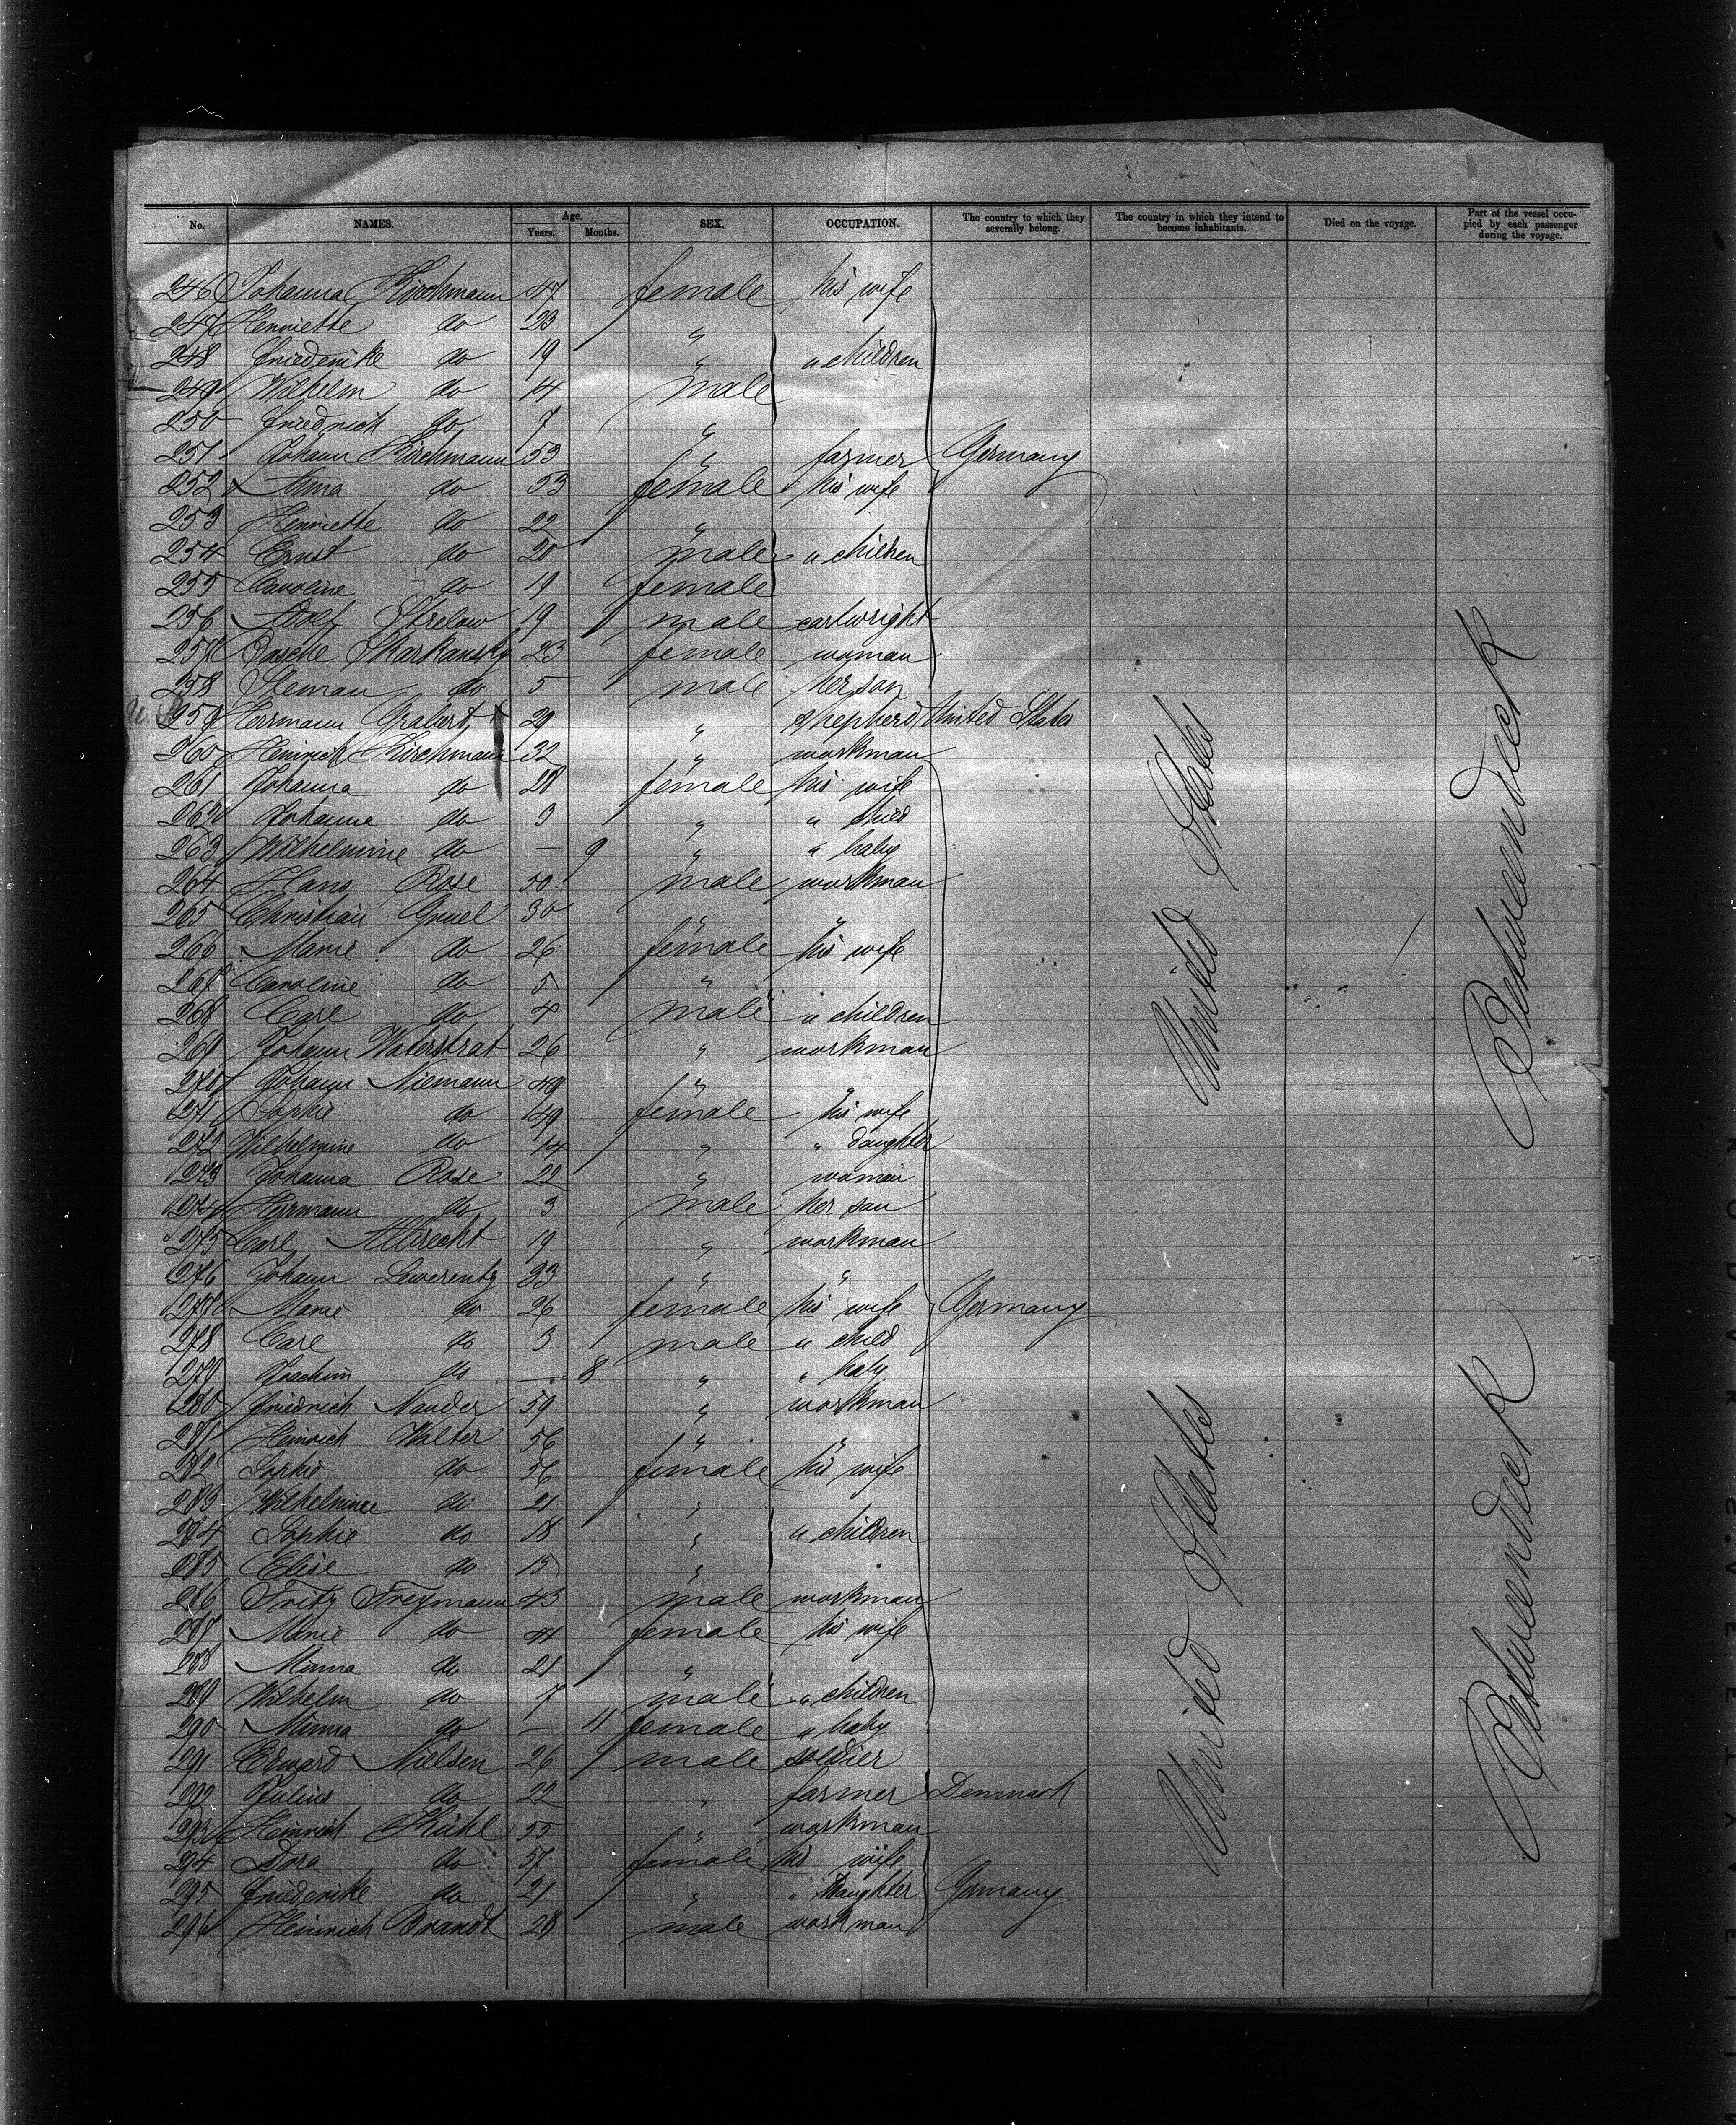 No. NAMES. Age. Years. Months. SEX. OCCUPATION. The country to which they severally belong. The country in which they intend to become inhabitants. Died on the voyage. Part of the vessel occupied by each passenger during the voyage.
246 Johanna Kirchmann 47 female his wife
247 Henriette do 23 "
248 Friederike do 19 " " children
249 Wilhelm do 14 male
250 Friedrich do 7 "
251 Johann Kirchmann 53 " farmer Germany
252 Anna do 53 female his wife
253 Henriette do 22 "
254 Ernst do 20 male " children
255 Caroline do 19 female
256 Adolf Strelow 19 male cartwright
257 Dasche Sharkansky 23 female woman
258 Sleman do 5 male her son
259 Herrmann Grabert 29 " shepherd United States
260 Heinrich Kirchmann 32 " workman
261 Johanna do 28 female his wife
262 Johanne do 3 " " child
263 Wilhelmine do — 9 " " baby
264 Hans Rose 50 male workman
265 Christian Gruel 30 " "
266 Marie do 26 female his wife
267 Caroline do 5 "
268 Carl do 4 male " children
269 Johann Waterstrat 26 " workman
270 Johann Niemann 49 " "
271 Sophie do 49 female his wife
272 Wilhelmine do 14 " " daughter
273 Johanna Rose 22 " woman
274 Herrmann do 3 male her son
275 Carl Albrecht 19 " workman
276 Johann Lewerentz 33 " "
277 Marie do 26 female his wife Germany
278 Carl do 3 male " child
279 Joachim do — 8 " " baby
280 Friedrich Nauder 59 " workman
281 Heinrich Walter 56 " "
282 Sophie do 56 female his wife
283 Wilhelmine do 21 "
284 Sophie do 18 " " children
285 Elise do 15 "
286 Fritz Freymann 43 male workman
287 Marie do 44 female his wife
288 Minna do 21 "
289 Wilhelm do 7 male " children
290 Minna do — 11 female " baby
291 Edward Nielsen 26 male soldier
292 Julius do 22 " farmer Denmark
293 Heinrich Kühl 55 " workman
294 Dora do 57 female his wife
295 Friederike do 21 " " daughter Germany
296 Heinrich Brandt 28 male workman
United States
United States
Betweendeck
Betweendeck